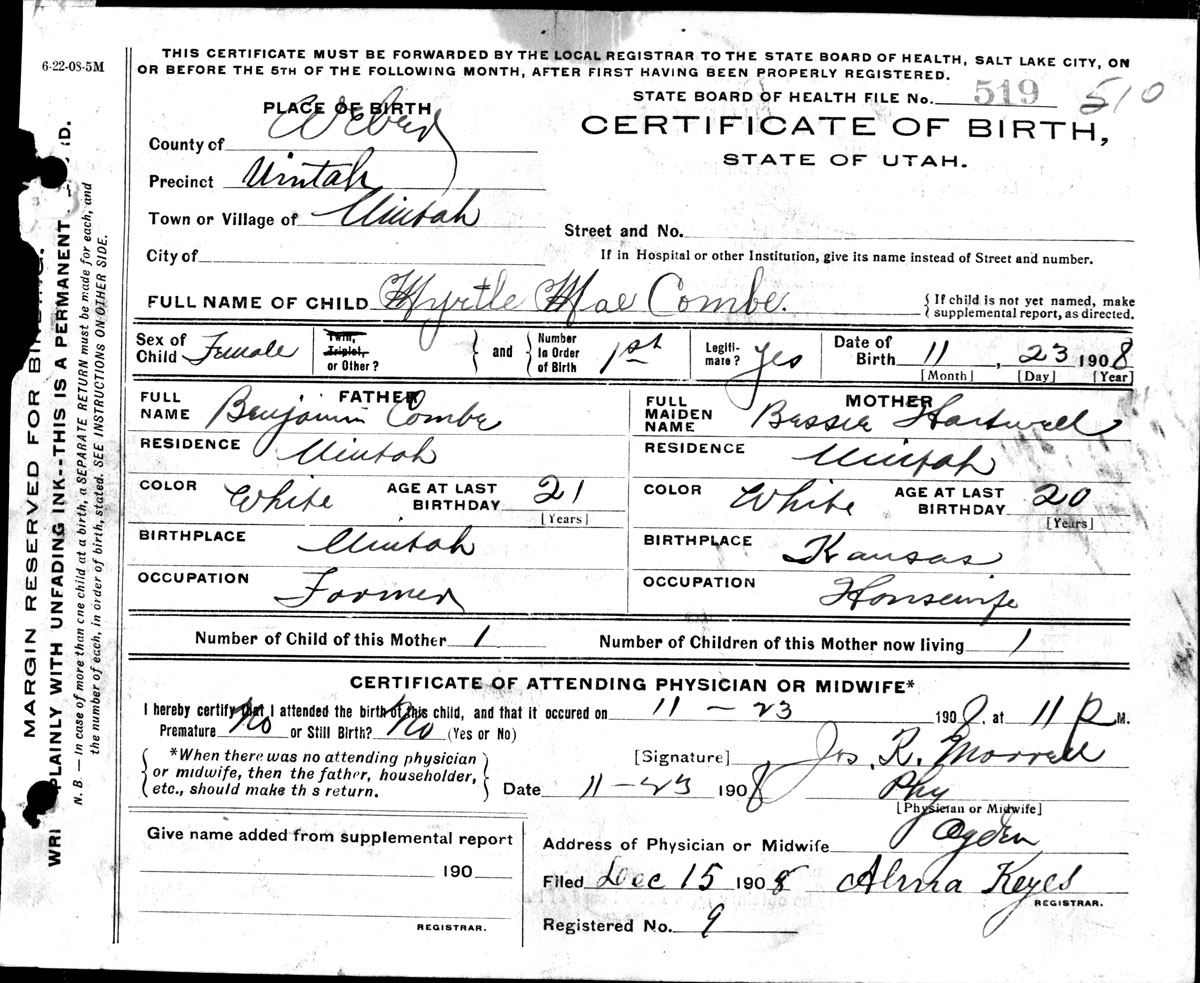 6-22-08-5M
THIS CERTIFICATE MUST BE FORWARDED BY THE LOCAL REGISTRAR TO THE STATE BOARD OF HEALTH, SALT LAKE CITY, ON
OR BEFORE THE 5TH OF THE FOLLOWING MONTH, AFTER FIRST HAVING BEEN PROPERLY REGISTERED.
STATE BOARD OF HEALTH FILE No. 519 510
PLACE OF BIRTH
CERTIFICATE OF BIRTH,
STATE OF UTAH.
County of Weber
Precinct Uintah
Town or Village of Uintah
Street and No.
City of
If in Hospital or other Institution, give its name instead of Street and number.
FULL NAME OF CHILD Myrtle Mae Combe.
{ If child is not yet named, make
supplemental report, as directed.
Sex of Child Female
Twin, Triplet, or Other?
} and { Number in Order of Birth 1st
Legiti-mate? Yes
Date of Birth 11, 23 1908
[Month] [Day] [Year]
FATHER
FULL NAME Benjamin Combe
RESIDENCE Uintah
COLOR White AGE AT LAST BIRTHDAY 21
[Years]
BIRTHPLACE Uintah
OCCUPATION Farmer
MOTHER
FULL MAIDEN NAME Bessie Hartwell
RESIDENCE Uintah
COLOR White AGE AT LAST BIRTHDAY 20
[Years]
BIRTHPLACE Kansas
OCCUPATION Housewife
Number of Child of this Mother 1 Number of Children of this Mother now living 1
CERTIFICATE OF ATTENDING PHYSICIAN OR MIDWIFE*
I hereby certify that I attended the birth of this child, and that it occured on 11-23 1908, at 11 P M.
Premature No or Still Birth? No (Yes or No)
*When there was no attending physician
or midwife, then the father, householder,
etc., should make th s return.
[Signature] Jos. R. Morrell
Date 11-23 1908 Phy
[Physician or Midwife]
Give name added from supplemental report
190
REGISTRAR.
Address of Physician or Midwife Ogden
Filed Dec 15 1908 Alma Keyes
REGISTRAR.
Registered No. 9
MARGIN RESERVED FOR BINDING.
WRI PLAINLY WITH UNFADING INK--THIS IS A PERMANENT RD.
N. B. — In case of more than one child at a birth, a SEPARATE RETURN must be made for each, and
the number of each, in order of birth, stated. SEE INSTRUCTIONS ON OTHER SIDE.